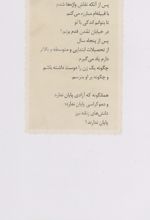 پس از آنکه نقاش واژه‌ها شدم
با قبیله‌ام مبارزه می‌کنم
تا بتوانم اندکی با تو
در خیابان تمدن قدم بزنم؟
پس از پنجاه سال
از تحصیلات ابتدایی و متوسطه و بالاتر
دارم یاد می‌گیرم
چگونه یک زن را دوست داشته باشم
و چگونه بر او بترسم
همانگونه که آزادی پایان ندارد
و دموکراسی پایان ندارد؛
دانش‌های زنانه نیز
پایان ندارند!